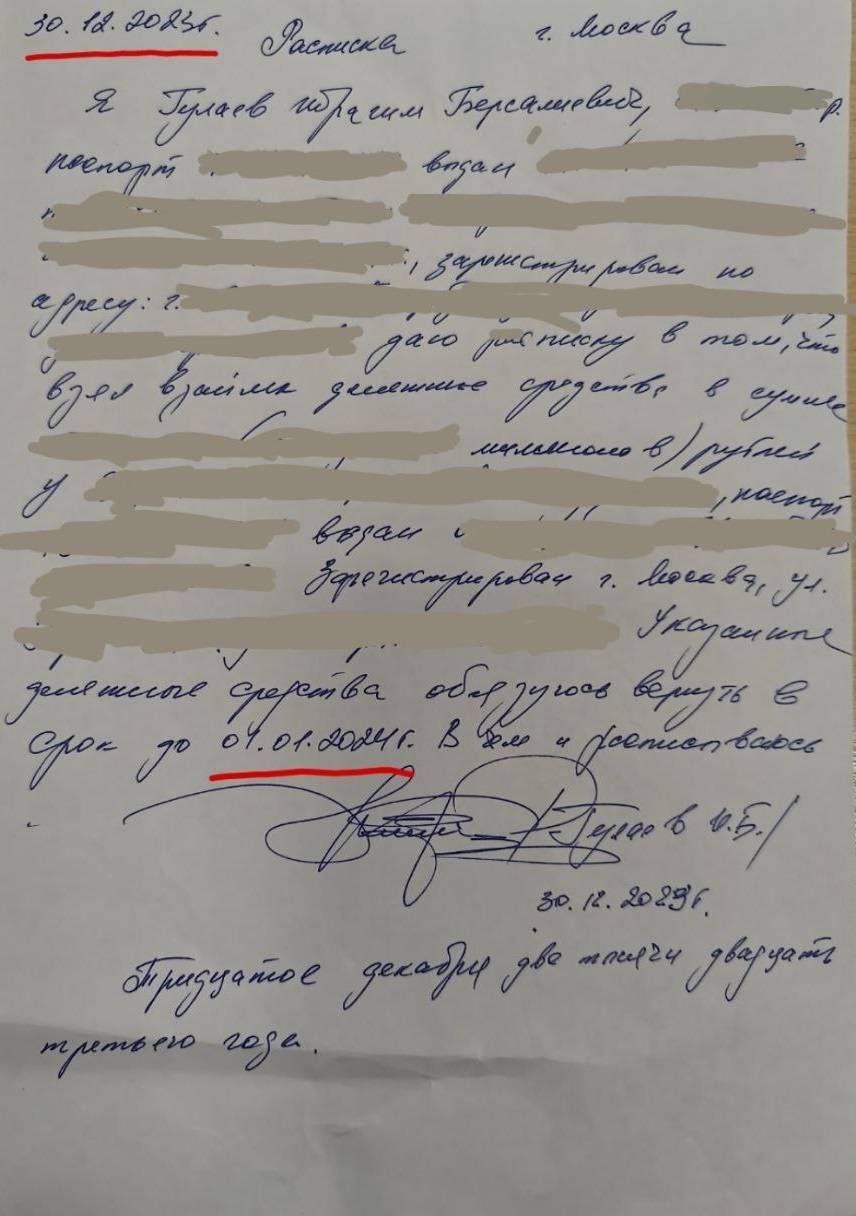 30.12.2023г. Расписка г. Москва
Я Гулаев Ибрагим Берсалиевич, р.
паспорт выдан
, зарегистрирован по
адресу: г.
даю расписку в том, что
взял взаймы денежные средства в сумме
миллионов) рублей
у , паспорт
выдан
Зарегистрирован г. Москва, ул.
Указанные
денежные средства обязуюсь вернуть в
срок до 01.01.2024г. В чем и расписываюсь
Гулаев И.Б./
30.12.2023г.
Тридцатое декабря две тысячи двадцать
третьего года.